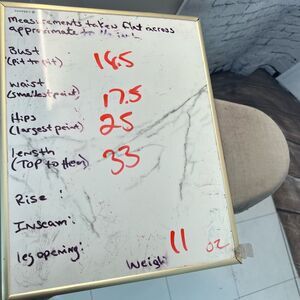 Measurements taken flat across
approximate to the inch
Bust
(Pit to Pit) 14.5
Waist
(smallest point) 17.5
Hips
(largest point) 25
length
(TOP to Hem) 33
Rise :
Inseam:
leg opening:
Weight 11 oz